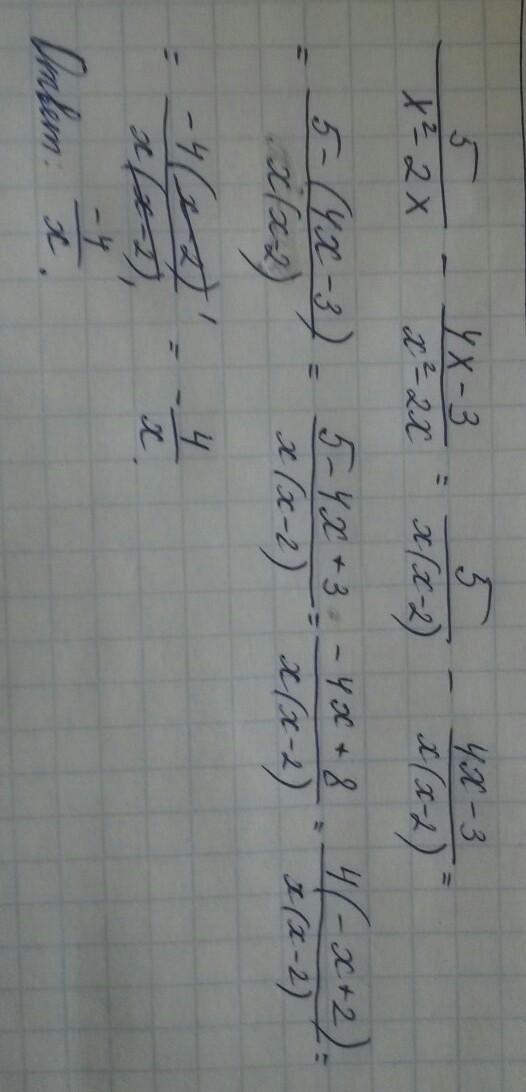 5/(x² - 2x) - (4x - 3)/(x² - 2x) = 5/(x(x-2)) - (4x - 3)/(x(x-2)) =
= (5 - (4x - 3))/(x(x-2)) = (5 - 4x + 3)/(x(x-2)) = (-4x + 8)/(x(x-2)) = 4(-x + 2)/(x(x-2)) =
= -4(x-2)¹/(x(x-2)₁) = -4/x.
Ответ: -4/x.